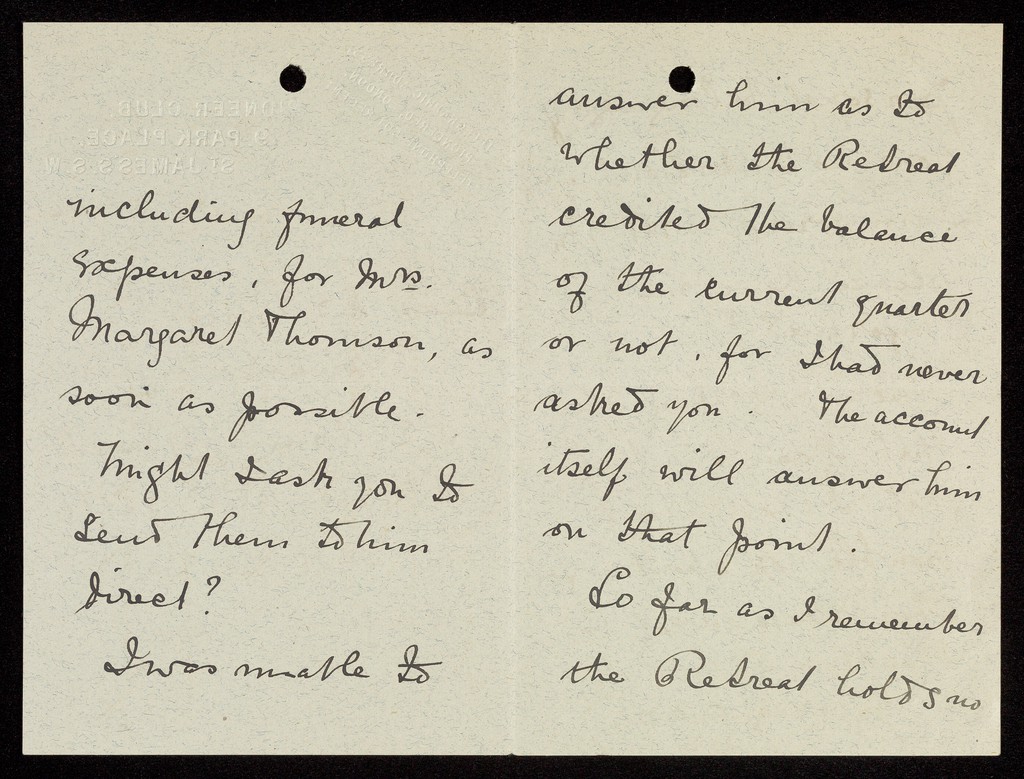 including funeral
expenses, for Mrs.
Margaret Thomson, as
soon as possible.
Might I ask you to
send them to him
direct?
I was unable to
answer him as to
whether the Retreat
credited the balance
of the current quarter
or not, for I had never
asked you. The account
itself will answer him
on that point.
So far as I remember
the Retreat holds no